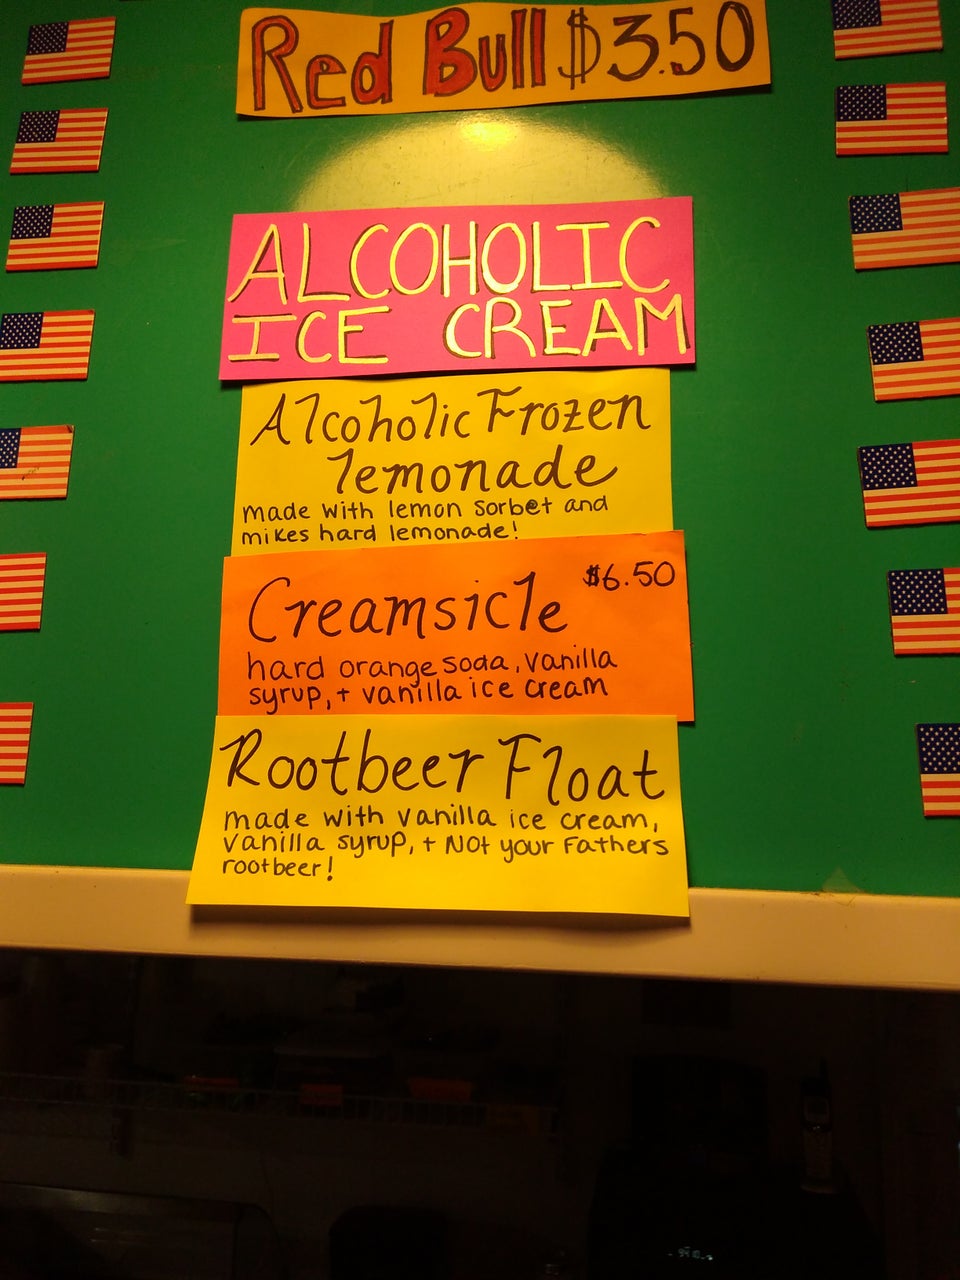 Red Bull $3.50
ALCOHOLIC
ICE CREAM
Alcoholic Frozen
lemonade
made with lemon sorbet and
mikes hard lemonade!
Creamsicle $6.50
hard orange soda, vanilla
syrup, + vanilla ice cream
Rootbeer Float
made with vanilla ice cream,
vanilla syrup, + NOt your Fathers
rootbeer!